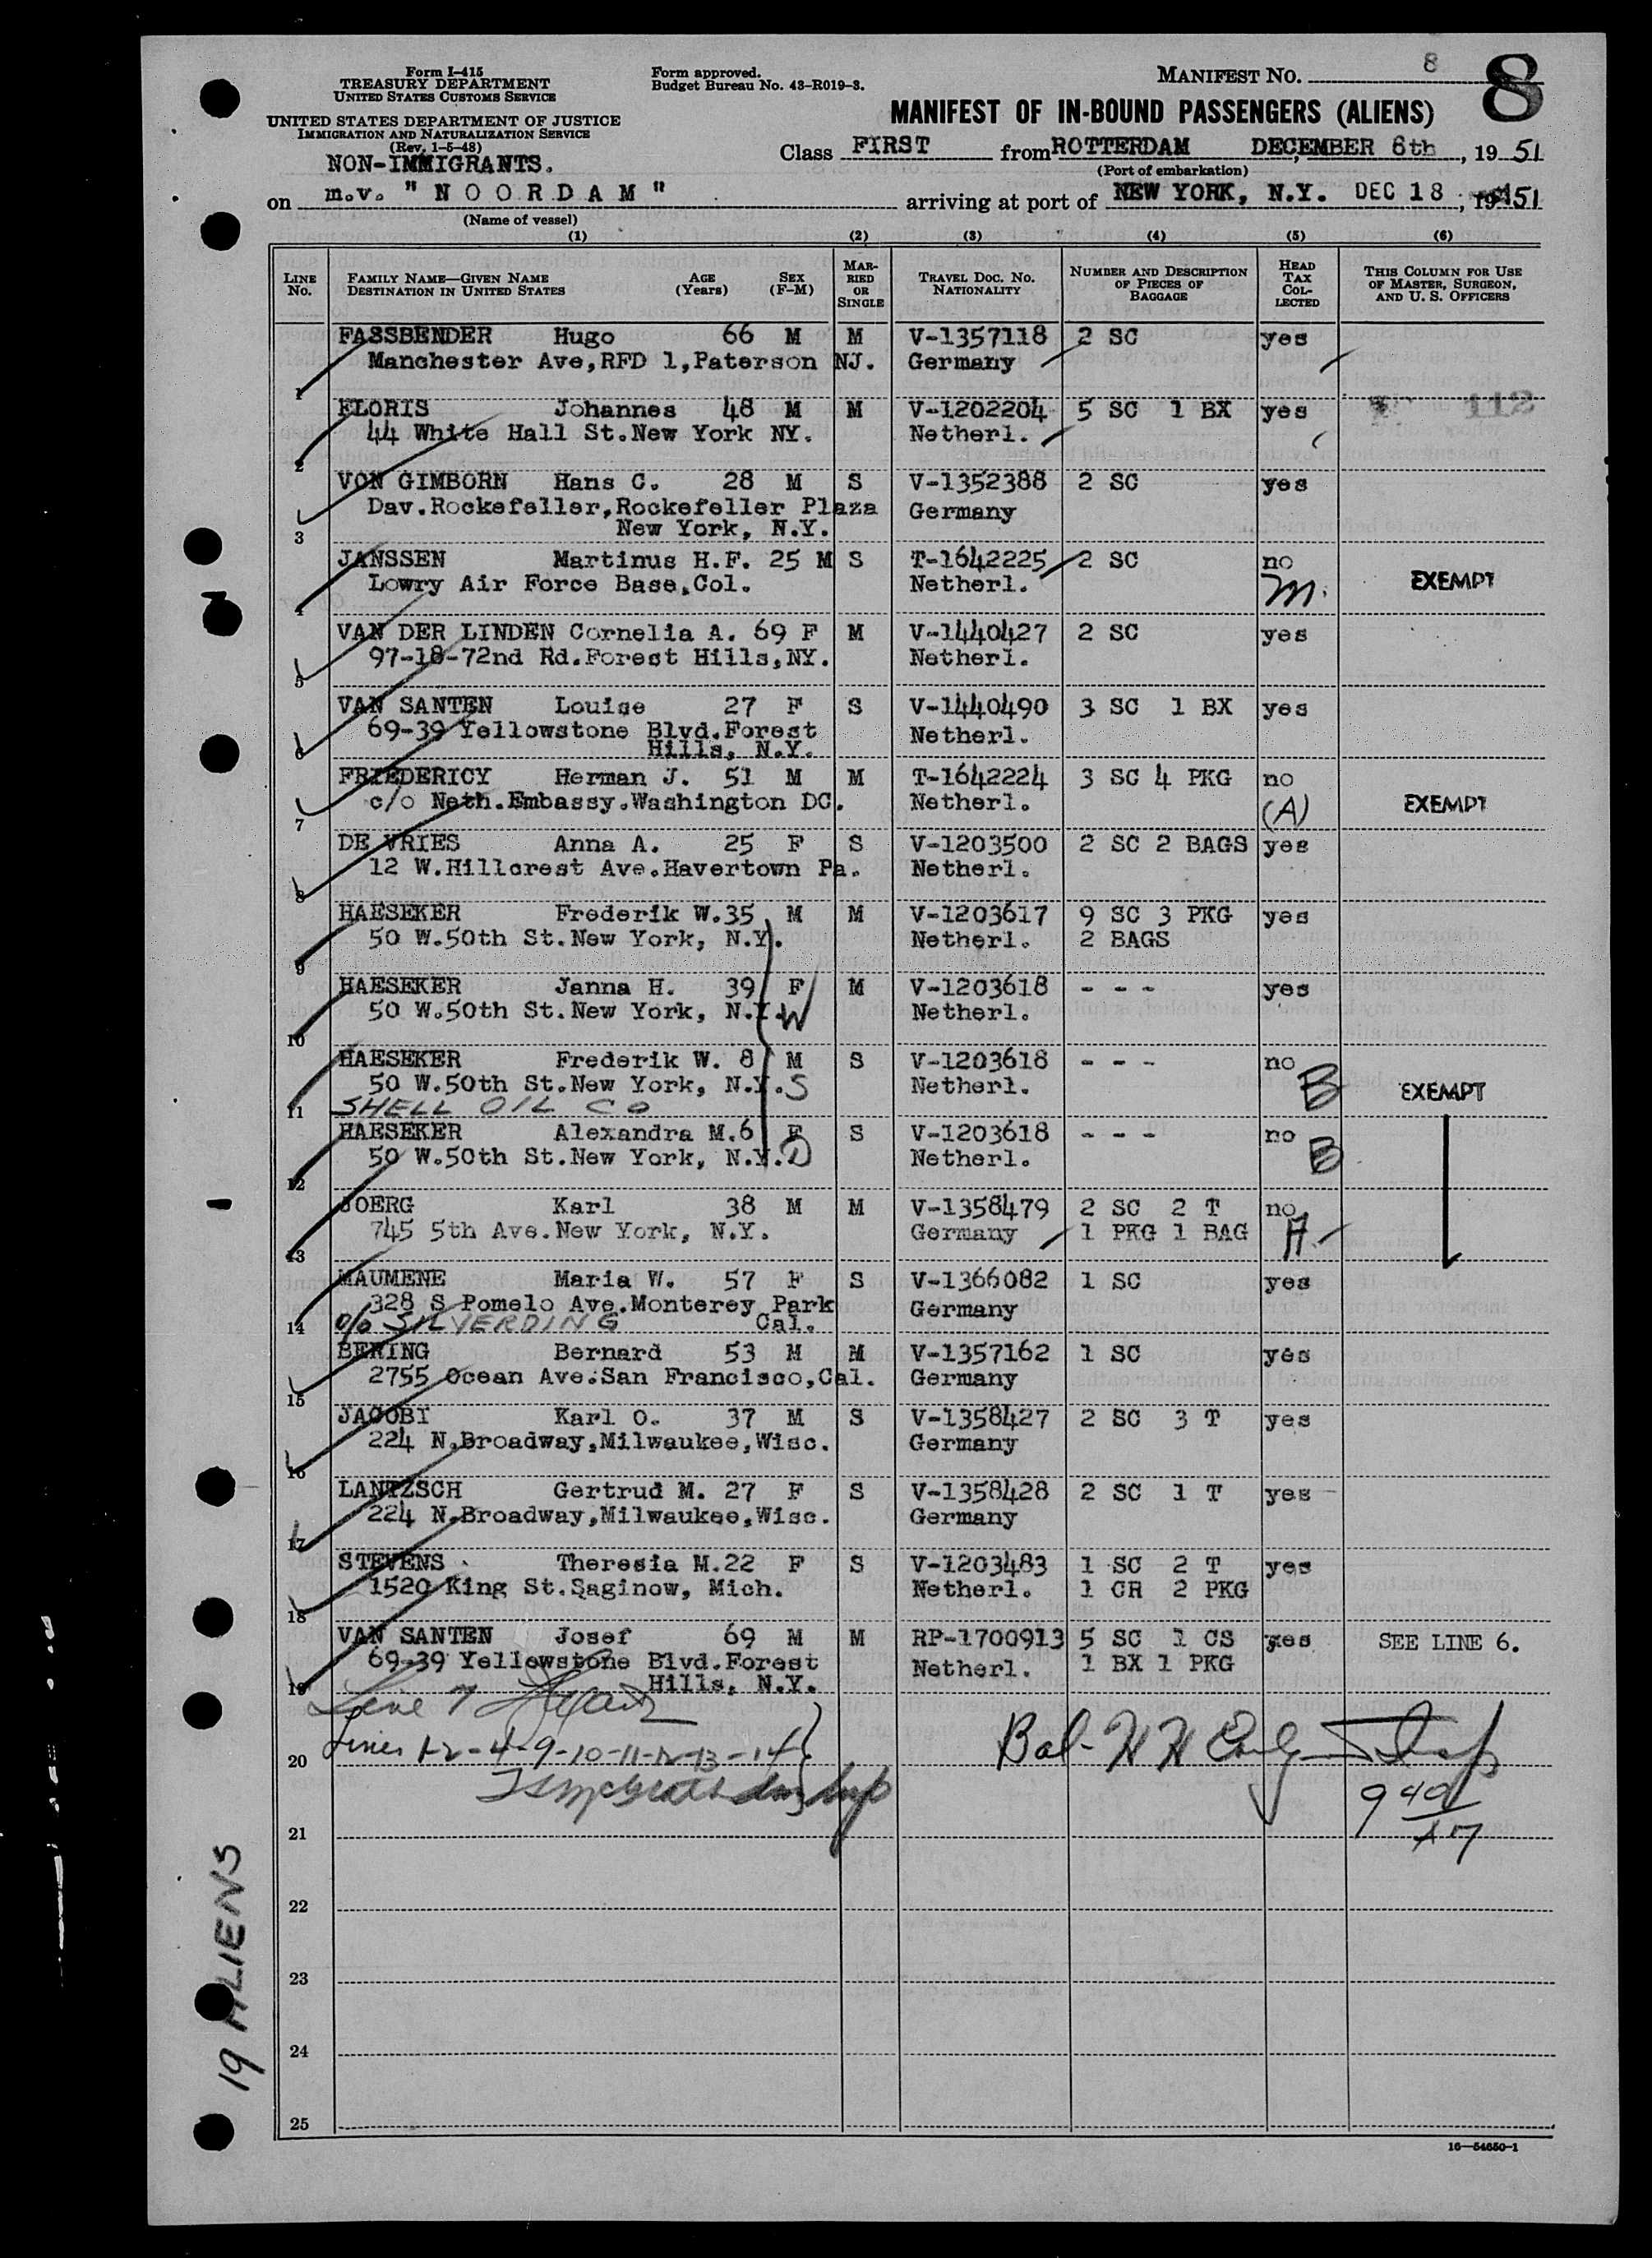 Form I-415
TREASURY DEPARTMENT
UNITED STATES CUSTOMS SERVICE
UNITED STATES DEPARTMENT OF JUSTICE
IMMIGRATION AND NATURALIZATION SERVICE
(Rev. 1-5-48)
NON-IMMIGRANTS.
Form approved.
Budget Bureau No. 43-R019-3.
MANIFEST NO. 8
8
MANIFEST OF IN-BOUND PASSENGERS (ALIENS)
Class FIRST from ROTTERDAM DECEMBER 6th, 1951
(Port of embarkation)
on m.v. "NOORDAM" arriving at port of NEW YORK, N.Y. DEC 18, 1951
(Name of vessel)
(1) (2) (3) (4) (5) (6)
LINE No. FAMILY NAME—GIVEN NAME DESTINATION IN UNITED STATES AGE (Years) SEX (F-M) MARRIED OR SINGLE TRAVEL DOC. NO. NATIONALITY NUMBER AND DESCRIPTION OF PIECES OF BAGGAGE HEAD TAX COLLECTED THIS COLUMN FOR USE OF MASTER, SURGEON, AND U. S. OFFICERS
FASSBENDER Hugo 66 M M V-1357118 2 SC yes
Manchester Ave,RFD 1,Paterson NJ. Germany
1
FLORIS Johannes 48 M M V-1202204 5 SC 1 BX yes 112
44 White Hall St.New York NY. Netherl.
2
VON GIMBORN Hans C. 28 M S V-1352388 2 SC yes
Dav.Rockefeller,Rockefeller Plaza Germany
3 New York, N.Y.
JANSSEN Martinus H.F. 25 M S T-1642225 2 SC no
Lowry Air Force Base,Col. Netherl. M. EXEMPT
4
VAN DER LINDEN Cornelia A. 69 F M V-1440427 2 SC yes
97-18-72nd Rd.Forest Hills,NY. Netherl.
5
VAN SANTEN Louise 27 F S V-1440490 3 SC 1 BX yes
69-39 Yellowstone Blvd.Forest Netherl.
6 Hills, N.Y.
FRIEDERICY Herman J. 51 M M T-1642224 3 SC 4 PKG no
c/o Neth.Embassy.Washington DC. Netherl. (A) EXEMPT
7
DE VRIES Anna A. 25 F S V-1203500 2 SC 2 BAGS yes
12 W.Hillcrest Ave.Havertown Pa. Netherl.
8
HAESEKER Frederik W. 35 M M V-1203617 9 SC 3 PKG yes
50 W.50th St.New York, N.Y. Netherl. 2 BAGS
9
HAESEKER Janna H. 39 F M V-1203618 - - - yes
50 W.50th St.New York, N.Y. W Netherl.
10
HAESEKER Frederik W. 8 M S V-1203618 - - - no
50 W.50th St.New York, N.Y. S Netherl. B EXEMPT
11 SHELL OIL CO
HAESEKER Alexandra M. 6 F S V-1203618 - - - no
50 W.50th St.New York, N.Y. D Netherl. B
12
JOERG Karl 38 M M V-1358479 2 SC 2 T no
745 5th Ave.New York, N.Y. Germany 1 PKG 1 BAG A
13
MAUMENE Maria W. 57 F S V-1366082 1 SC yes
328 S Pomelo Ave.Monterey Park Germany
14 c/o SILVERDING Cal.
BERING Bernard 53 M M V-1357162 1 SC yes
2755 Ocean Ave.San Francisco,Cal. Germany
15
JACOBI Karl O. 37 M S V-1358427 2 SC 3 T yes
224 N.Broadway,Milwaukee,Wisc. Germany
16
LANTZSCH Gertrud M. 27 F S V-1358428 2 SC 1 T yes
224 N.Broadway,Milwaukee,Wisc. Germany
17
STEVENS Theresia M. 22 F S V-1203483 1 SC 2 T yes
1520 King St.Saginow, Mich. Netherl. 1 CR 2 PKG
18
VAN SANTEN Josef 69 M M RP-1700913 5 SC 1 CS yes SEE LINE 6.
69-39 Yellowstone Blvd.Forest Netherl. 1 BX 1 PKG
19 Hills, N.Y.
Line 7
Lines 1-2-4-9-10-11-12-13-14
20
Bal-
21
22
23
24
25
19 ALIENS
16—54650-1